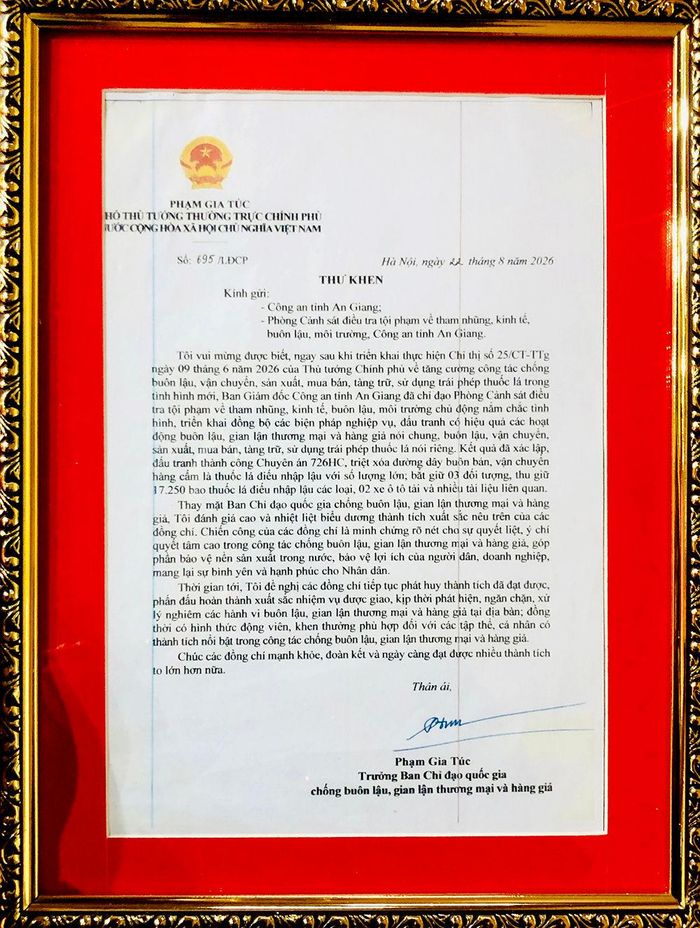 PHẠM GIA TÚC
HÓ THỦ TƯỚNG THƯỜNG TRỰC CHÍNH PHỦ
ƯỚC CỘNG HÒA XÃ HỘI CHỦ NGHĨA VIỆT NAM
Số: 695/LĐCP
Hà Nội, ngày 22 tháng 8 năm 2026
THƯ KHEN
Kính gửi:
- Công an tỉnh An Giang;
- Phòng Cảnh sát điều tra tội phạm về tham nhũng, kinh tế,
buôn lậu, môi trường, Công an tỉnh An Giang.
Tôi vui mừng được biết, ngay sau khi triển khai thực hiện Chỉ thị số 25/CT-TTg
ngày 09 tháng 6 năm 2026 của Thủ tướng Chính phủ về tăng cường công tác chống
buôn lậu, vận chuyển, sản xuất, mua bán, tàng trữ, sử dụng trái phép thuốc lá trong
tình hình mới, Ban Giám đốc Công an tỉnh An Giang đã chỉ đạo Phòng Cảnh sát điều
tra tội phạm về tham nhũng, kinh tế, buôn lậu, môi trường chủ động nắm chắc tình
hình, triển khai đồng bộ các biện pháp nghiệp vụ, đấu tranh có hiệu quả các hoạt
động buôn lậu, gian lận thương mại và hàng giả nói chung, buôn lậu, vận chuyển,
sản xuất, mua bán, tàng trữ, sử dụng trái phép thuốc lá nói riêng. Kết quả đã xác lập,
đấu tranh thành công Chuyên án 726HC, triệt xóa đường dây buôn bán, vận chuyển
hàng cấm là thuốc lá điếu nhập lậu với số lượng lớn; bắt giữ 03 đối tượng, thu giữ
17.250 bao thuốc lá điếu nhập lậu các loại, 02 xe ô tô tải và nhiều tài liệu liên quan.
Thay mặt Ban Chỉ đạo quốc gia chống buôn lậu, gian lận thương mại và hàng
giả, Tôi đánh giá cao và nhiệt liệt biểu dương thành tích xuất sắc nêu trên của các
đồng chí. Chiến công của các đồng chí là minh chứng rõ nét cho sự quyết liệt, ý chí
quyết tâm cao trong công tác chống buôn lậu, gian lận thương mại và hàng giả, góp
phần bảo vệ nền sản xuất trong nước, bảo vệ lợi ích của người dân, doanh nghiệp,
mang lại sự bình yên và hạnh phúc cho Nhân dân.
Thời gian tới, Tôi đề nghị các đồng chí tiếp tục phát huy thành tích đã đạt được,
phấn đấu hoàn thành xuất sắc nhiệm vụ được giao, kịp thời phát hiện, ngăn chặn, xử
lý nghiêm các hành vi buôn lậu, gian lận thương mại và hàng giả tại địa bàn; đồng
thời có hình thức động viên, khen thưởng phù hợp đối với các tập thể, cá nhân có
thành tích nổi bật trong công tác chống buôn lậu, gian lận thương mại và hàng giả.
Chúc các đồng chí mạnh khỏe, đoàn kết và ngày càng đạt được nhiều thành tích
to lớn hơn nữa.
Thân ái,
Phạm Gia Túc
Trưởng Ban Chỉ đạo quốc gia
chống buôn lậu, gian lận thương mại và hàng giả